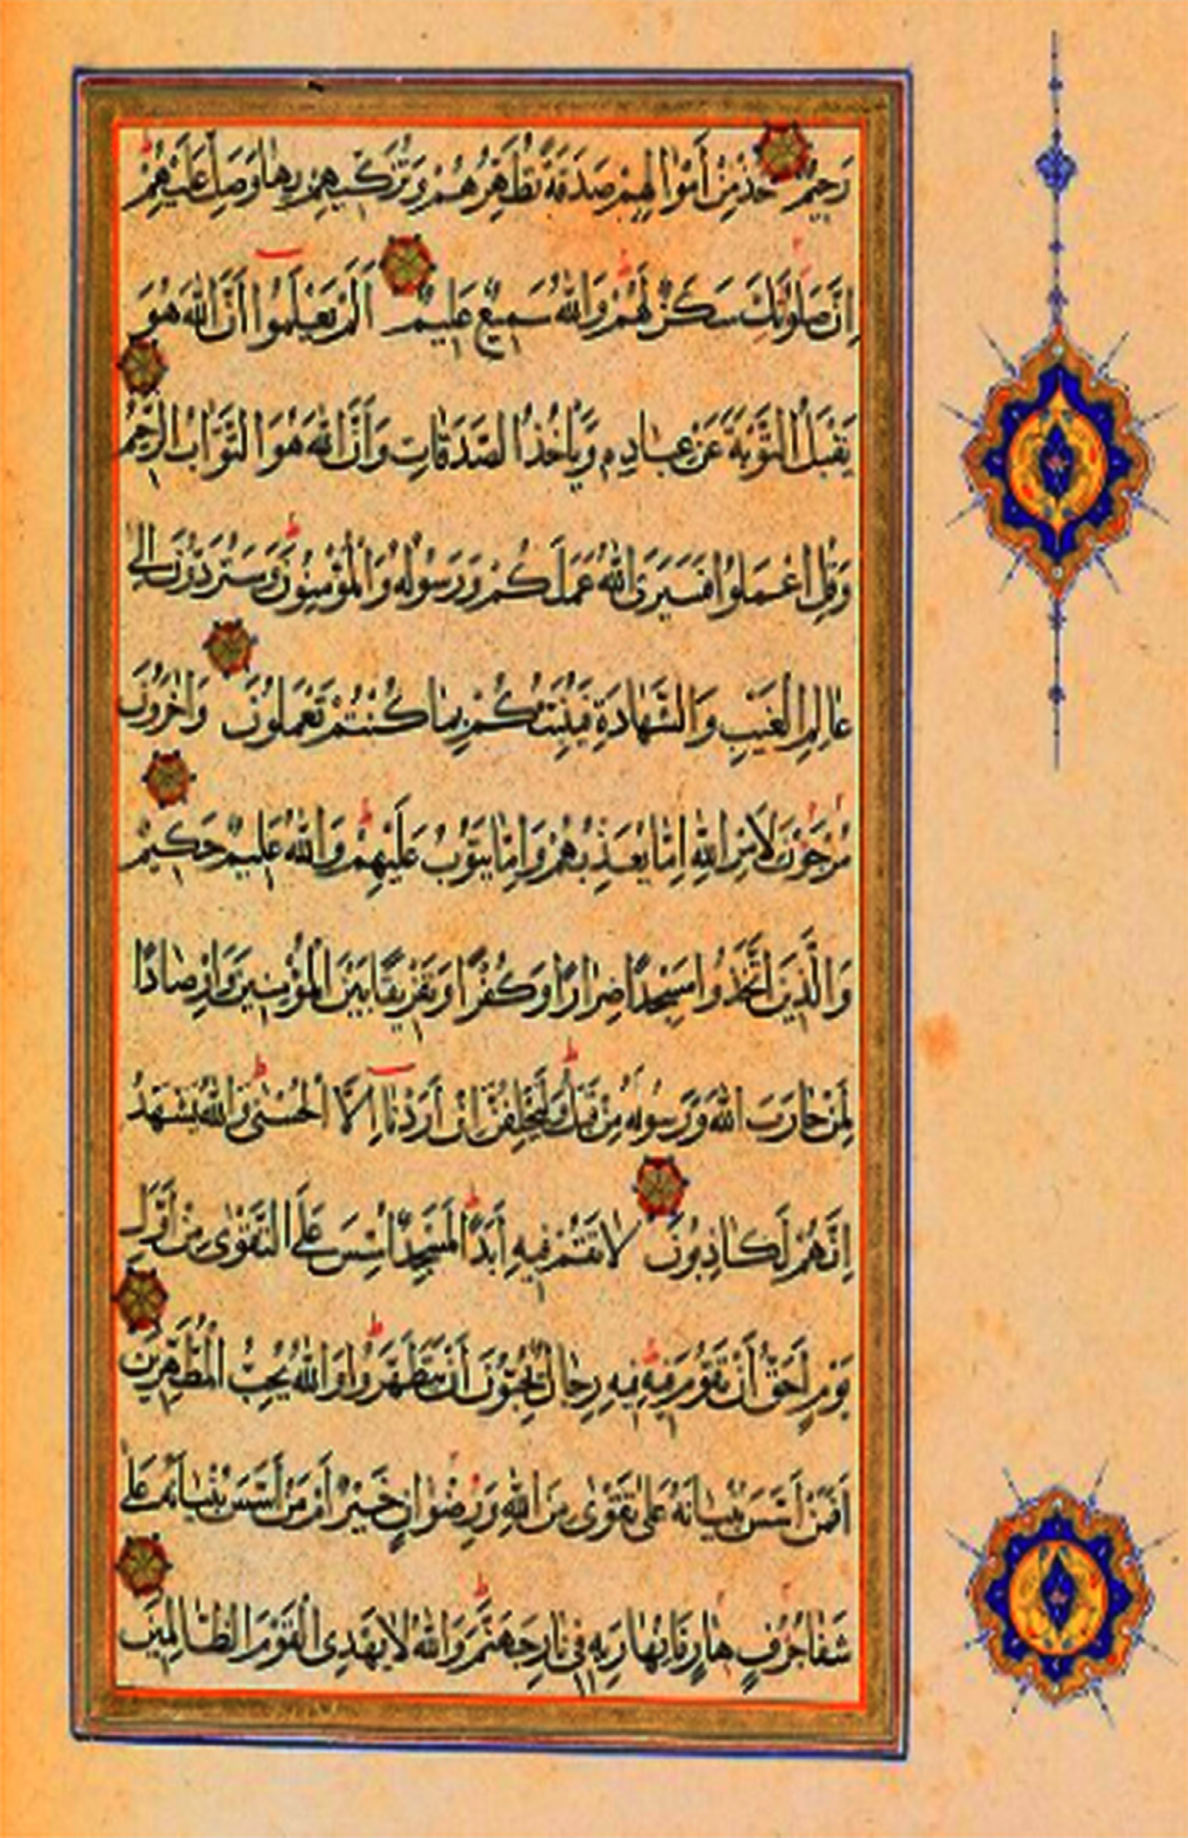 رَحِيمٌ خُذْ مِنْ أَمْوَالِهِمْ صَدَقَةً تُطَهِّرُهُمْ وَتُزَكِّيهِمْ بِهَا وَصَلِّ عَلَيْهِمْ
إِنَّ صَلٰوتَكَ سَكَنٌ لَهُمْ وَاللّٰهُ سَمِيعٌ عَلِيمٌ أَلَمْ يَعْلَمُوا أَنَّ اللّٰهَ هُوَ
يَقْبَلُ التَّوْبَةَ عَنْ عِبَادِهِ وَيَأْخُذُ الصَّدَقَاتِ وَأَنَّ اللّٰهَ هُوَ التَّوَّابُ الرَّحِيمُ
وَقُلِ اعْمَلُوا فَسَيَرَى اللّٰهُ عَمَلَكُمْ وَرَسُولُهُ وَالْمُؤْمِنُونَ وَسَتُرَدُّونَ إِلٰى
عَالِمِ الْغَيْبِ وَالشَّهَادَةِ فَيُنَبِّئُكُمْ بِمَا كُنْتُمْ تَعْمَلُونَ وَاٰخَرُونَ
مُرْجَوْنَ لِأَمْرِ اللّٰهِ إِمَّا يُعَذِّبُهُمْ وَإِمَّا يَتُوبُ عَلَيْهِمْ وَاللّٰهُ عَلِيمٌ حَكِيمٌ
وَالَّذِينَ اتَّخَذُوا مَسْجِدًا ضِرَارًا وَكُفْرًا وَتَفْرِيقًا بَيْنَ الْمُؤْمِنِينَ وَإِرْصَادًا
لِمَنْ حَارَبَ اللّٰهَ وَرَسُولَهُ مِنْ قَبْلُ وَلَيَحْلِفُنَّ إِنْ أَرَدْنَا إِلَّا الْحُسْنٰى وَاللّٰهُ يَشْهَدُ
إِنَّهُمْ لَكَاذِبُونَ لَا تَقُمْ فِيهِ أَبَدًا لَمَسْجِدٌ أُسِّسَ عَلَى التَّقْوٰى مِنْ أَوَّلِ
يَوْمٍ أَحَقُّ أَنْ تَقُومَ فِيهِ فِيهِ رِجَالٌ يُحِبُّونَ أَنْ يَتَطَهَّرُوا وَاللّٰهُ يُحِبُّ الْمُطَّهِّرِينَ
أَفَمَنْ أَسَّسَ بُنْيَانَهُ عَلٰى تَقْوٰى مِنَ اللّٰهِ وَرِضْوَانٍ خَيْرٌ أَمْ مَنْ أَسَّسَ بُنْيَانَهُ عَلٰى
شَفَا جُرُفٍ هَارٍ فَانْهَارَ بِهِ فِي نَارِ جَهَنَّمَ وَاللّٰهُ لَا يَهْدِي الْقَوْمَ الظَّالِمِينَ